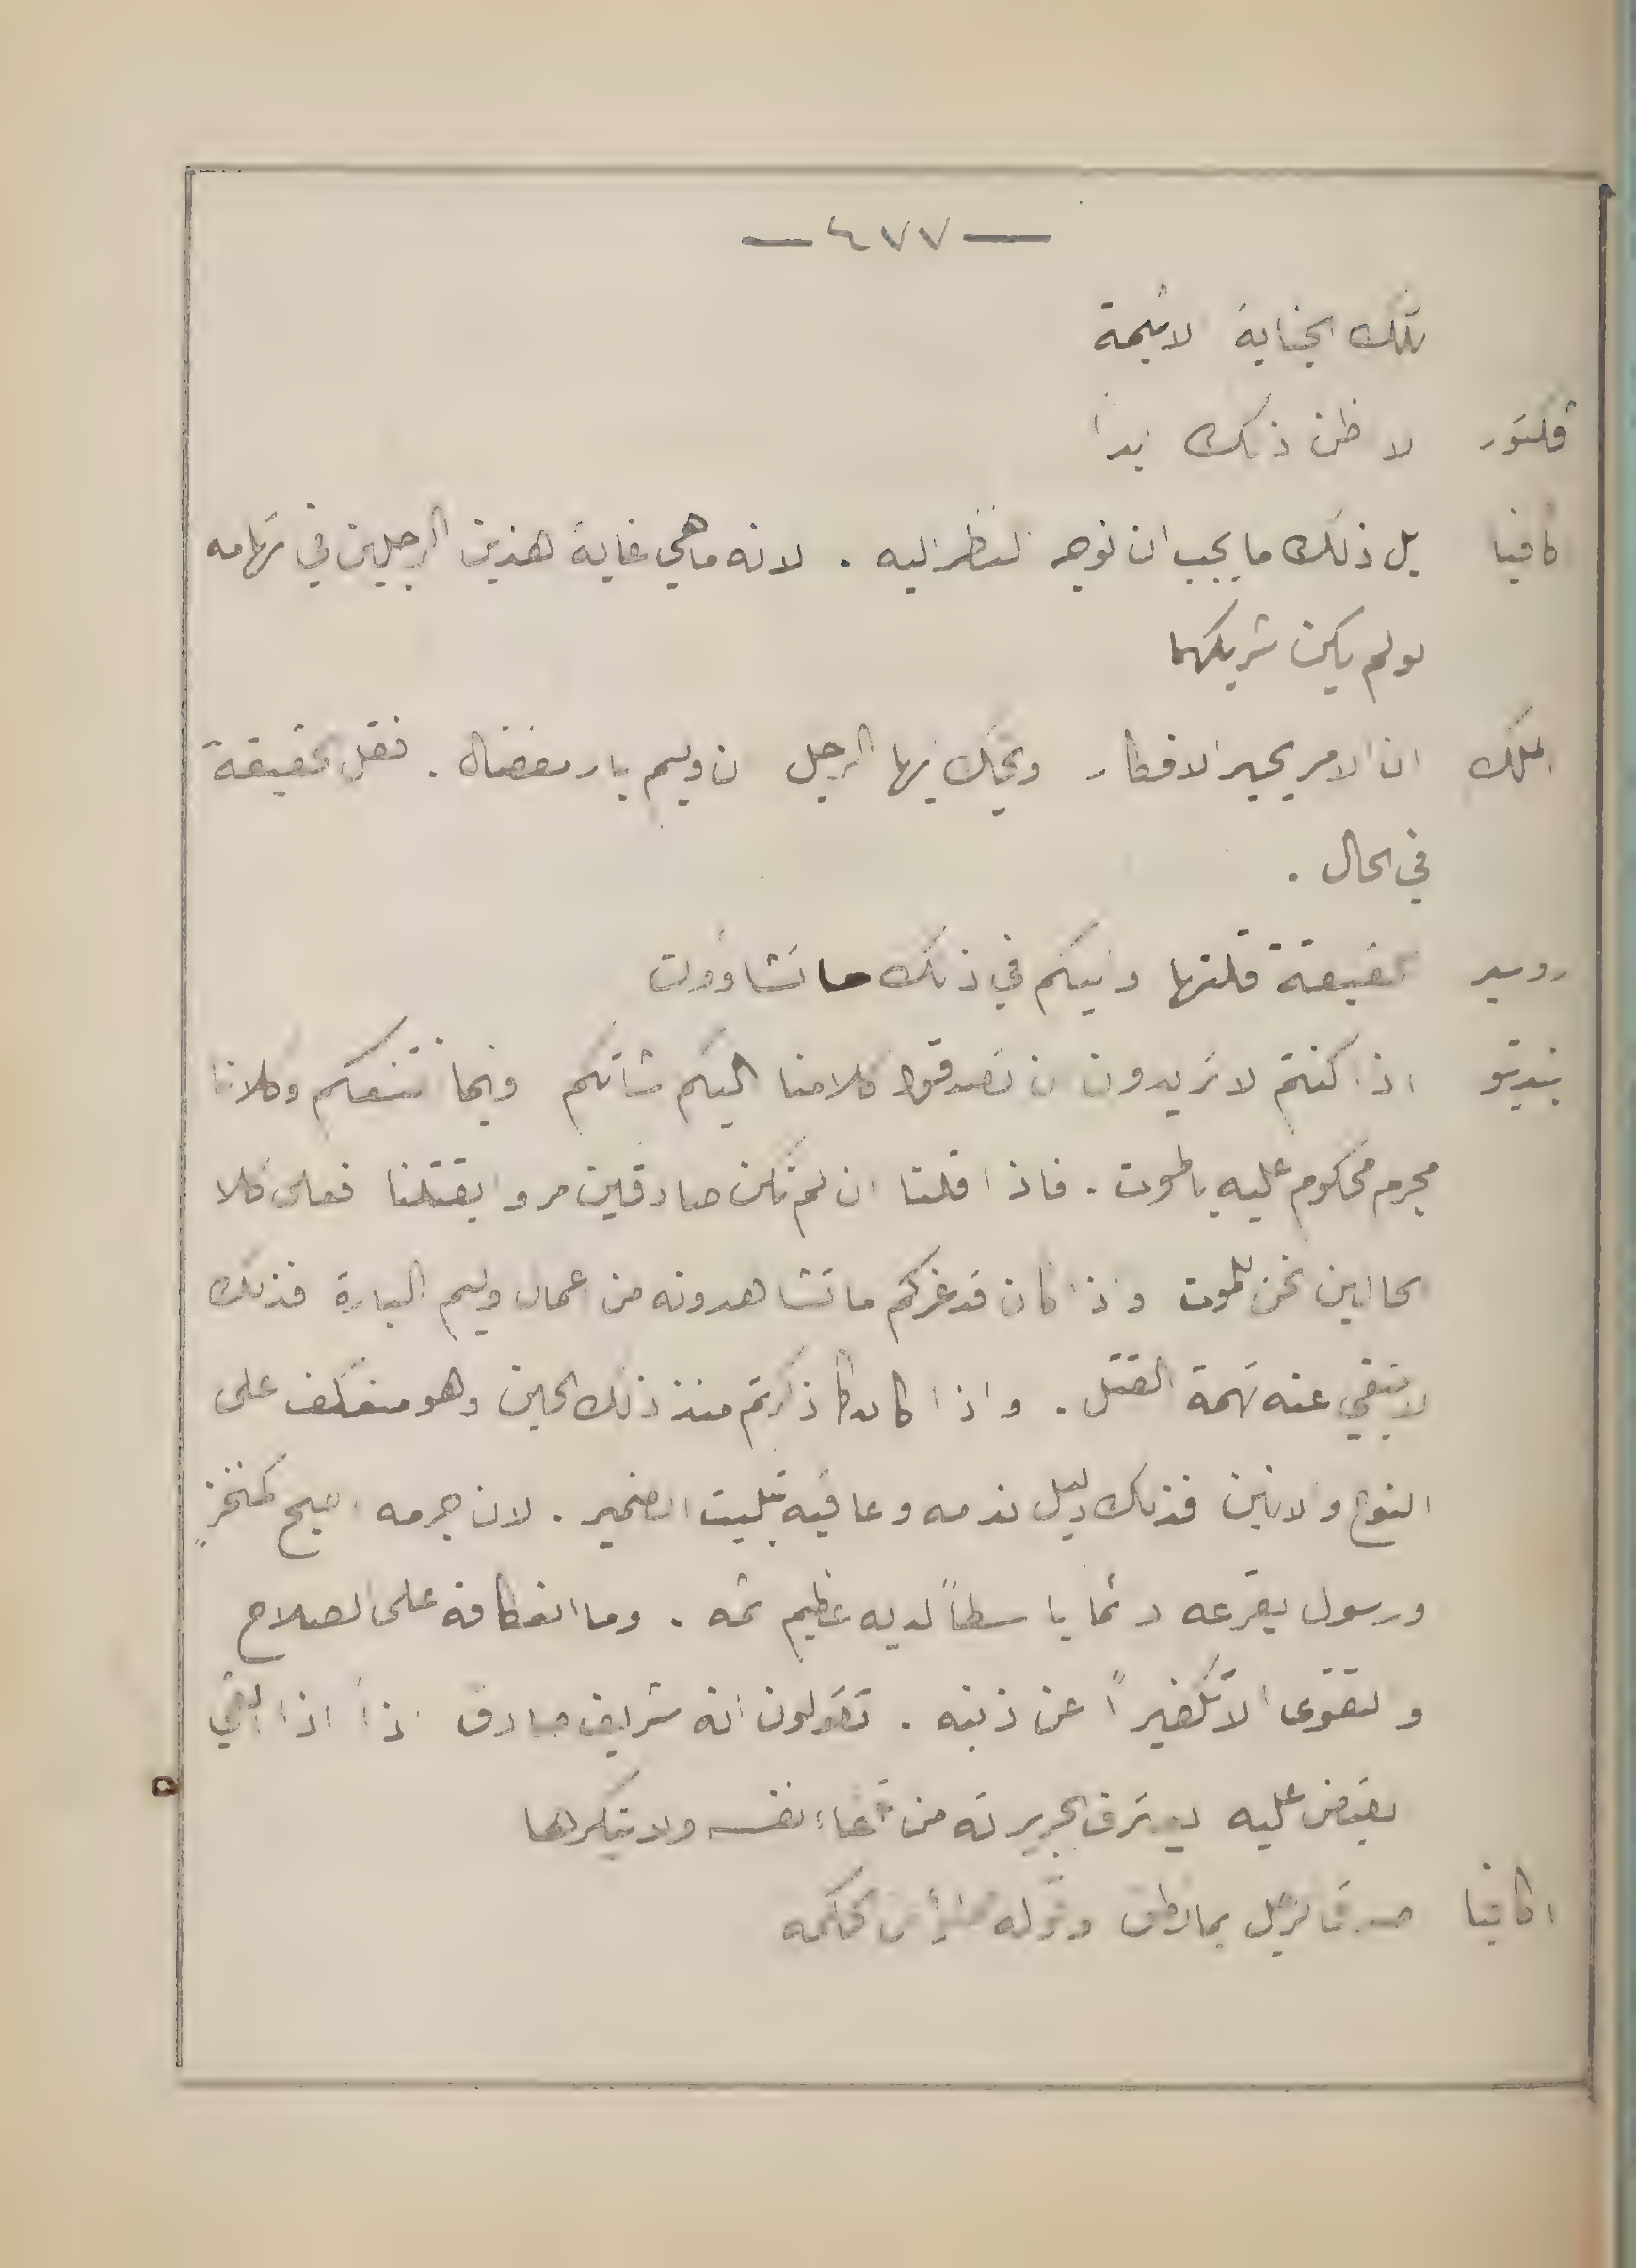 — ٤٧٧ —
تلك الجناية الاثيمة
ڤلتور لا اظن ذلك ابداً
كافيا بل ذلك ما يجب ان نوجه النظر اليه . لانه ما هي غاية هذين الرجلين في تهامه
لو لم يكن شريكهما
الملك ان الامر يحير الافكار ويحك ايها الرجل ان وليم بار مفضال . فقل الحقيقة
في الحال .
روبير الحقيقة قلتها واليكم في ذلك ما تشاؤون
بنديتو اذا كنتم لا تريدون ان تصدقوا كلامنا اليكم شأنكم وبما نتهمكم وكلانا
مجرم محكوم عليه بالموت . فاذا قلنا ان لم نكن صادقين مروا بقتلنا فعلى كلا
الحالين نحن للموت واذا كان قد غركم ما تشاهدونه من اعمال وليم البارة فذلك
لا ينفي عنه تهمة القتل . واذا كان كما ذكرتم منذ ذلك الحين وهو منعكف على
النواح والانين فذلك دليل ندمه وعاقبة تبكيت الضمير . لان جرمه اصبح كمنخزٍ
ورسول يقرعه دائما باسطاً لديه عظيم اثمه . وما انعكافه على الصلاح
والتقوى الا تكفيراً عن ذنبه . تقولون انه شريف صادق اذاً اذا القي
القبض عليه ليعترف بالجريرته من تلقاء نفسه ولا ينكرها
اكافيا صدق الرجل بما نطق